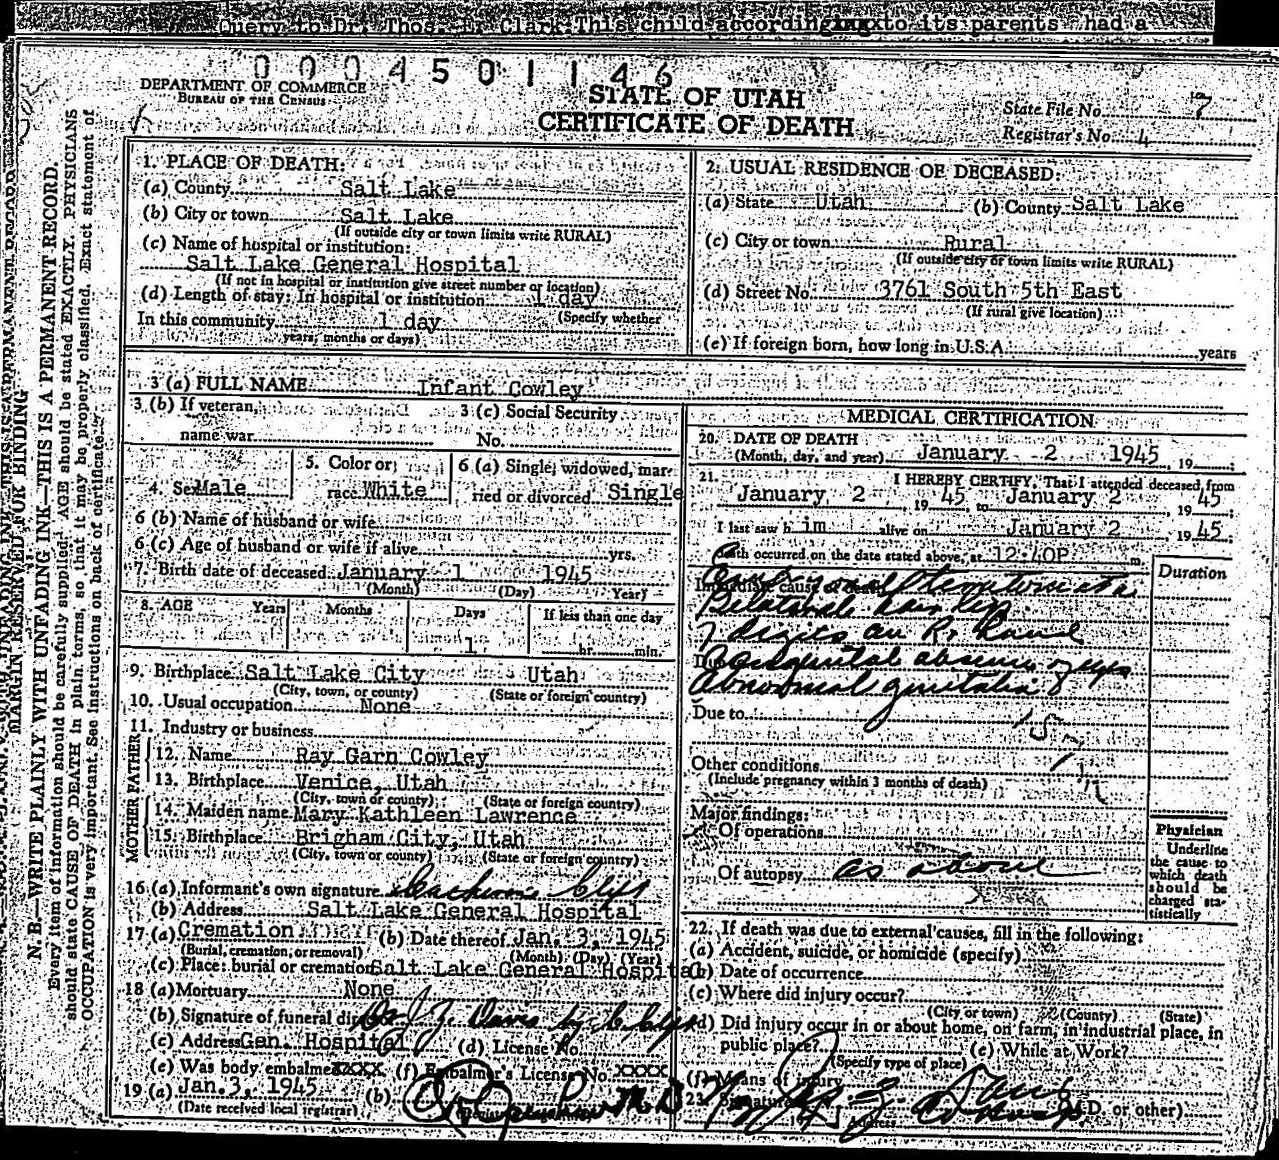 Query to Dr. Thos. E. Clark:This child according to its parents had a
0 0 0 4 5 0 1 1 4 6
DEPARTMENT OF COMMERCE
BUREAU OF THE CENSUS
STATE OF UTAH
CERTIFICATE OF DEATH
State File No. 7
Registrar's No. 4
MARGIN RESERVED FOR BINDING
N. B.—WRITE PLAINLY WITH UNFADING INK—THIS IS A PERMANENT RECORD.
Every item of information should be carefully supplied. AGE should be stated EXACTLY. PHYSICIANS
should state CAUSE OF DEATH in plain terms, so that it may be properly classified. Exact statement of
OCCUPATION is very important. See instructions on back of certificate.
1. PLACE OF DEATH:
(a) County Salt Lake
(b) City or town Salt Lake
(If outside city or town limits write RURAL)
(c) Name of hospital or institution:
Salt Lake General Hospital
(If not in hospital or institution give street number or location)
(d) Length of stay: In hospital or institution 1 day
(Specify whether
In this community 1 day
years, months or days)
2. USUAL RESIDENCE OF DECEASED:
(a) State Utah (b) County Salt Lake
(c) City or town Rural
(If outside city or town limits write RURAL)
(d) Street No. 3761 South 5th East
(If rural give location)
(e) If foreign born, how long in U.S.A. years
3 (a) FULL NAME Infant Cowley
3 (b) If veteran, 3 (c) Social Security
name war No.
4. Sex Male 5. Color or race White 6 (a) Single, widowed, married or divorced Single
6 (b) Name of husband or wife
6 (c) Age of husband or wife if alive yrs.
7. Birth date of deceased January 1 1945
(Month) (Day) Year)
8. AGE Years Months Days If less than one day
1 hr. min.
9. Birthplace Salt Lake City Utah
(City, town, or county) (State or foreign country)
10. Usual occupation None
11. Industry or business
FATHER
12. Name Ray Garn Cowley
13. Birthplace Venice, Utah
(City, town or county) (State or foreign country)
MOTHER
14. Maiden name Mary Kathleen Lawrence
15. Birthplace Brigham City, Utah
(City, town or county) (State or foreign country)
16 (a) Informant's own signature
(b) Address Salt Lake General Hospital
17 (a) Cremation (b) Date thereof Jan. 3, 1945
(Burial, cremation, or removal) (Month) (Day) (Year)
(c) Place: burial or cremation Salt Lake General Hospital
18 (a) Mortuary None
(b) Signature of funeral director Davis by
(c) Address Gen. Hospital (d) License No.
(e) Was body embalmed XXXX (f) Embalmer's License No. XXXX
19 (a) Jan. 3, 1945 (b) M.D.
(Date received local registrar)
MEDICAL CERTIFICATION
20. DATE OF DEATH
(Month, day, and year) January 2 1945, 19
21. I HEREBY CERTIFY, That I attended deceased from
January 2, 1945 to January 2, 1945
I last saw h im alive on January 2 1945
Death occurred on the date stated above, at 12:40P m.
Immediate cause of death
Bilateral hair lip
7 digits on R. hand
Congenital absence of eyes
Abnormal genitalia
Due to
Other conditions
(Include pregnancy within 3 months of death)
Major findings:
Of operations
Of autopsy as above
Duration
Physician
Underline
the cause to
which death
should be
charged sta-
tistically
22. If death was due to external causes, fill in the following:
(a) Accident, suicide, or homicide (specify)
(b) Date of occurrence
(c) Where did injury occur?
(City or town) (County) (State)
(d) Did injury occur in or about home, on farm, in industrial place, in
public place? (e) While at Work?
(Specify type of place)
(f) Means of injury
23. Signature (M.D. or other)
Address